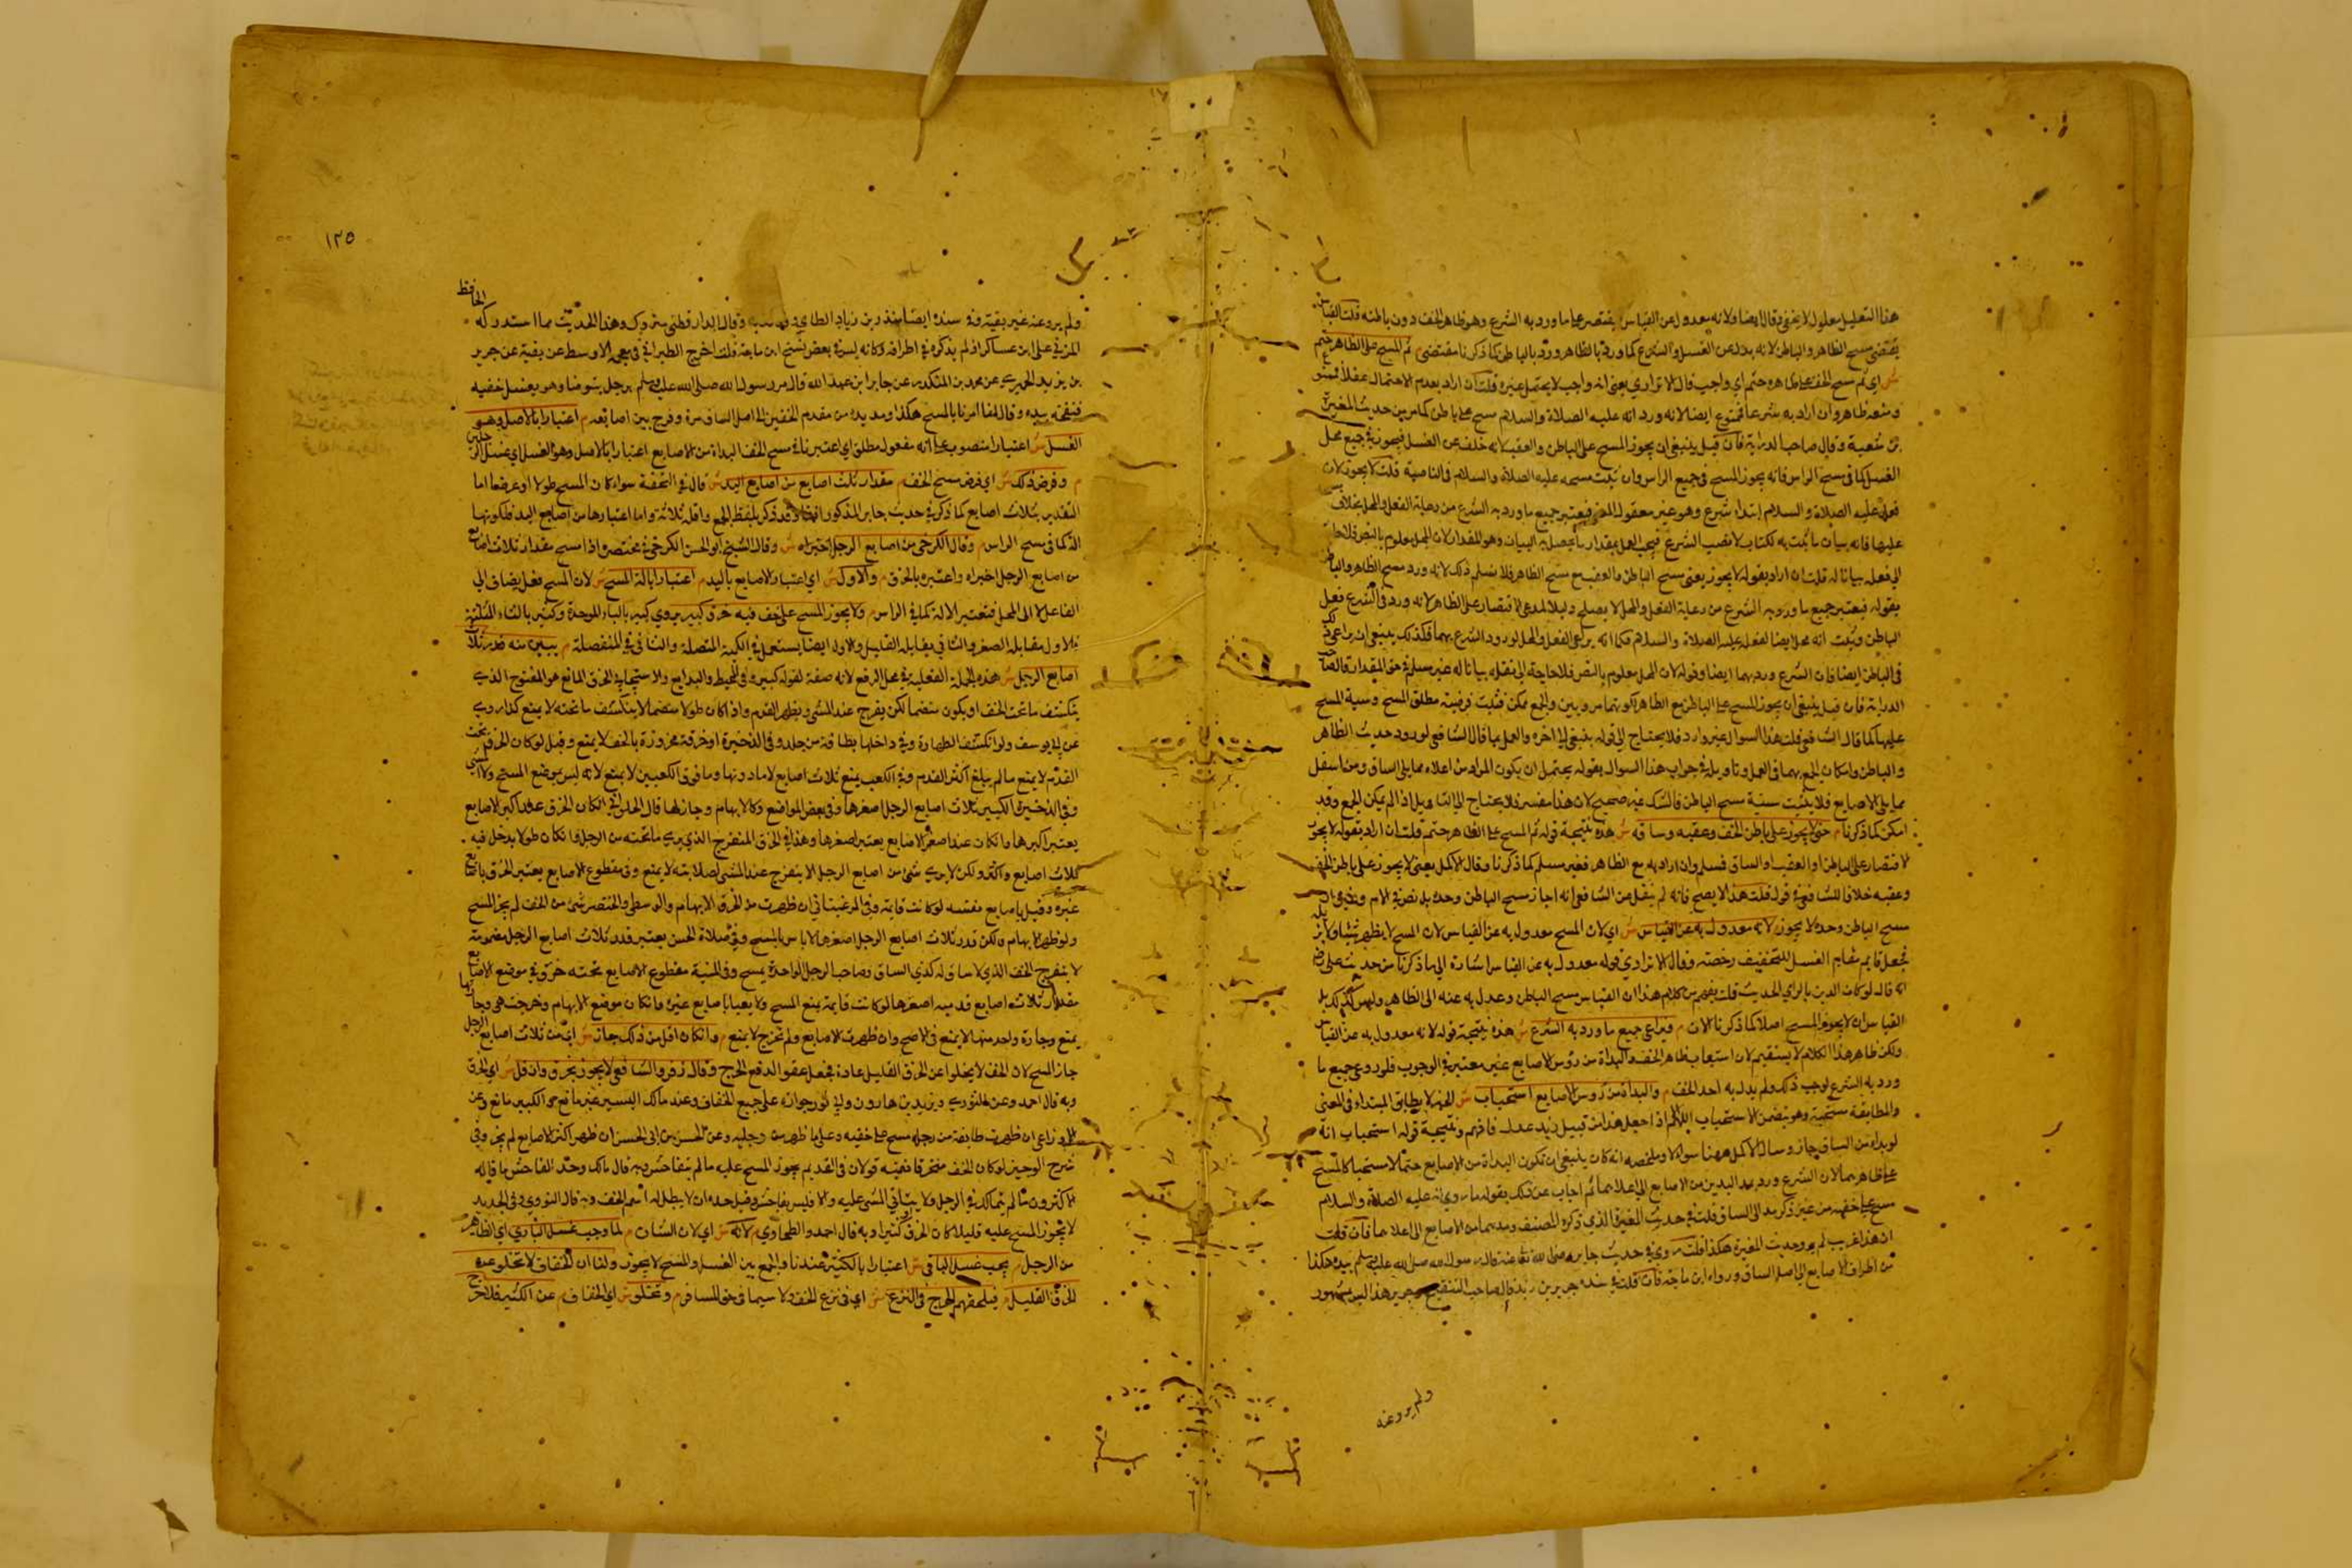 هذا التعليل معلول لا يخفى وقال ايضا ولانه معدول عن القياس فيقتصر على ما ورد به الشرع وهو ظاهر الخف دون باطنه قلت القياس
يقتضي مسح الظاهر والباطن لانه بدل عن الغسل والشرع كما ورد بالظاهر ورد بالباطن كما ذكرنا مقتضى م ثم المسح على الظاهر حتم
ش اي ثم مسح الخف على ظاهره حتم اي واجب قال الاترازي يعني انه واجب لا يحتمل غيره قلت ان اراد بعدم الاحتمال عقلا فمنوع
ومنعه ظاهر وان اراد به شرعا فممنوع ايضا لانه ورد انه عليه الصلاة والسلام مسح على باطن كما مر من حديث المغيرة
بن شعبة وقال صاحب الدراية فان قيل ينبغي ان يجوز المسح على الباطن والعقب لانه خلف عن الغسل فيجوز في جميع محل
الغسل كما في مسح الراس فانه يجوز المسح في جميع الراس وان ثبت مسحه عليه الصلاة والسلام في الناصية قلت لا يجوز لان
فعله عليه الصلاة والسلام ابتداء شرع وهو غير معقول المعنى فيعتبر جميع ما ورد به الشرع من رعاية الفعل والمحل بخلاف
عليها فانه بيان ما ثبت به لكتاب لا نصب الشرع فيجب العمل بمقدار ما يحصل به البيان وهو المقدار لان المحل معلوم بالنص فلا حاجة
الى فعله بيانا له قلت ان اراد بقوله لا يجوز يعني مسح الباطن والعقب مع مسح الظاهر فلا نسلم ذلك لانه ورد مسح الظاهر والباطن
بقوله فيعتبر جميع ما ورد به الشرع من رعاية الفعل والمحل لا يصلح دليلا لمدعي الاقتصار على الظاهر لانه ورد في الشرع فعل
الباطن وثبت انه محل ايضا لفعله عليه الصلاة والسلام فكما انه يراعى الفعل والمحل لورود الشرع بهما فكذلك ينبغي ان يراعى ذلك
في الباطن ايضا فان الشرع ورد بهما ايضا وقوله لان المحل معلوم بالنص فلا حاجة الى فعله بيانا له غير مسلم في حق المقدار قال صاحب
الدراية فان قيل ينبغي ان يجوز المسح على الباطن مع الظاهر لكونهما مرويين والجمع ممكن فثبت فرضية مطلق المسح وسنية المسح
عليهما كما قال الشافعي قلت هذا السوال غير وارد فلا يحتاج الى قوله ينبغي الى اخره والعمل بما قال الشافعي لورود حديث الظاهر
والباطن وامكان الجمع بهما في العمل وتاويله في جواب هذا السوال بقوله يحتمل ان يكون المراد من اعلاه مما يلي الساق ومن اسفل
مما يلي الاصابع فلا يثبت سنية مسح الباطن فالشك غير صحيح لان هذا مفسر فلا يحتاج الى التاويل اذا لم يمكن الجمع وقد
امكن كما ذكرنا م حتى لا يجوز على باطن الخف وعقبه وساقه ش هذه نتيجة قوله ثم المسح على الظاهر حتم قلت ان اراد بقوله لا يجوز
الاقتصار على الباطن او العقب او الساق فمسلم وان اراد به مع الظاهر فغير مسلم كما ذكرنا وقال الاكمل يعني لا يجوز على باطن الخف
وعقبه خلافا للشافعي في قول قلت هذا لا يصح فانه لم ينقل عن الشافعي انه اجاز مسح الباطن وحده بل نص في الام
مسح الباطن وحده لا يجوز م لانه معدول به عن القياس ش اي لان المسح معدول به عن القياس لان المسح لا يطهر شيئا ولا يزيله
فجعل قايم مقام الغسل للتخفيف رخصة وقال الاترازي قوله معدول به عن القياس اشارة الى ما ذكرنا من حديث علي رضى
انه قال لو كان الدين بالراي الحديث قلت يفهم من كلامه هذا ان القياس مسح الباطن وعدل به عنه الى الظاهر وليس كذلك بل
القياس ان لا يجوز المسح اصلا كما ذكرنا الان م فيراعى جميع ما ورد به الشرع ش هذه نتيجة قوله لانه معدول به عن القياس
ولكن ظاهر هذا الكلام لا يستقيم لان استيعاب ظاهر الخف والبداة من رؤس الاصابع غير معتبر في الوجوب فلو روعي جميع ما
ورد به الشرع لوجب ذلك ولم يدل به احد الخف م والبداة من رؤس الاصابع استحباب ش
والمطابقة مستحبة وهو يتضمن الاستحباب اللهم الا اذا جعل هذا من قبيل زيد عدل فافهم ونتيجة قوله استحباب انه
لو بدا من الساق جاز وسال الاكمل ههنا سوالا وملخصه انه كان ينبغي ان تكون البداة من الاصابع حتما لا مستحبا كالمسح
على ظاهرهما لان الشرع ورد بمد اليدين من الاصابع الى اعلاهما ثم اجاب عن ذلك بقوله ما روي انه عليه الصلاة والسلام
مسح على خفيه من غير ذكر مد الى الساق قلت في حديث المغيرة الذي ذكره المصنف ومدهما من الاصابع الى اعلاهما فان قلت
ان هذا غريب لم يرو حديث المغيرة هكذا قلت روي في حديث جابر رضى الله تعالى عنه قال رسول الله صلى الله عليه وسلم بيده هكذا
من اطراف الاصابع الى اصل الساق ورواه ابن ماجة فان قلت في سنده جرير بن زيد قال صاحب التنقيح جرير هذا ليس بمشهور
ولم يروعنه
١٢٥
ولم يرو عنه غير بقية وفي سنده ايضا منذر بن زياد الطاي وقال الدارقطني متروك وهذا الحديث مما استدركه الحافظ
المزي على ابن عساكر اذ لم يذكره في اطرافه وكانه ليس في بعض نسخ ابن ماجة قلت اخرج الطبراني في معجمه الاوسط عن بقية عن جرير
بن يزيد الحميري عن محمد بن المنكدر عن جابر ابن عبد الله قال مر رسول الله صلى الله عليه وسلم برجل يتوضا وهو يغسل خفيه
فنخسه بيده وقال انما امرنا بالمسح هكذا ومد يده من مقدم الخفين الى اصل الساق مرة وفرج بين اصابعه م اعتبارا بالاصل وهو
الغسل ش اعتبارا منصوب على انه مفعول مطلق اي اعتبرنا في مسح الخف البداة من الاصابع اعتبارا بالاصل وهو الغسل اي غسل الرجلين
م وفرض ذلك ش اي فرض مسح الخف م مقدار ثلث اصابع من اصابع اليد ش قال في التحفة سواء كان المسح طولا او عرضا اما
التقدير بثلاث اصابع كما ذكر في حديث جابر المذكور انفا وقد ذكر بلفظ الجمع واقله ثلاثة واما اعتبارها من اصابع اليد فلكونها
الة كما في مسح الراس م وقال الكرخي من اصابع الرجل اختيراه ش وقال الشيخ ابو الحسن الكرخي في مختصره اذا مسح مقدار ثلاث اصابع
من اصابع الرجل اجزاه واعتبره بالخرق م والاول ش اي اعتبار الاصابع باليد م اعتبارا بالة المسح ش لان المسح فعل يضاف الى
الفاعل لا الى المحل فتعتبر الالة كما في الراس م ولا يجوز المسح على خف فيه خرق كبير يروى كبير بالباء الموحدة وكثير بالثاء المثلثة
فالاول مقابله الصغير والثاني مقابله القليل والاول ايضا يستعمل في الكمية المتصلة والثاني في المنفصلة م يبين منه قدر ثلاث
اصابع الرجل ش هذه الجملة الفعلية في محل الرفع لانه صفة لقوله كبير وفي المحيط والبدايع والاسبيجابي الخرق المانع هو المفتوح الذي
ينكشف ما تحت الخف او يكون منضما لكن ينفرج عند المشي ويظهر القدم واذا كان طولا منضما لا ينكشف ما تحته لا يمنع كذا روي
عن ابي يوسف ولو انكشف الظهارة وفي داخلها بطانة من جلد وفي الذخيرة او خرقة مخروزة بالخف لا يمنع وقيل لو كان الخرق تحت
القدم لا يمنع ما لم يبلغ اكثر القدم وفي الكعب يمنع ثلاث اصابع لا ما دونها وما فوق الكعبين لا يمنع لانه ليس بموضع المسح
وفي الذخيرة الكبير ثلاث اصابع الرجل اصغرها وفي بعض المواضع وكالابهام وجارتها قال الحلواني ان كان الخرق عند اكبر الاصابع
يعتبر اكبرها وان كان عند اصغر الاصابع يعتبر اصغرها وهذا في الخرق المنفرج الذي يرى ما تحته من الرجل وان كان طولا يدخل فيه
ثلاث اصابع واكثر ولكن لا يرى شئ من اصابع الرجل لا ينفرج عند المشي لصلابته لا يمنع وفي مقطوع الاصابع يعتبر الخرق باصابع
غيره وقيل باصابع نفسه لو كانت قايمة وفي المرغيناني ان ظهرت من الخرق الابهام والوسطى والخنصر شئ من الخف لم يجز المسح
ولو ظهر الابهام ولكن قدر ثلاث اصابع الرجل اصغرها لا باس بالمسح وفي صلاة الحسن يعتبر قدر ثلاث اصابع الرجل مضمومة
لا ينفرج الخف الذي لا ساق له كذي الساق وصاحب الرجل الواحدة يمسح وفي المنية مقطوع الاصابع تحته خرق في موضع الاصابع
مقدار ثلاث اصابع قدميه اصغرها لو كانت قايمة يمنع المسح ولا يعبا باصابع غيره وان كان موضع الابهام وخرجت هي وجارتها
يمنع وجارة واحد منها لا يمنع في الاصح وان ظهرت الاصابع ولم تخرج لا يمنع م وان كان اقل من ذلك جاز ش اي من ثلاث اصابع الرجل
جاز المسح لان الخف لا يخلوا عن الخرق القليل عادة فجعل عفوا لدفع الحرج م وقال زفر والشافعي لا يجوز بخرق وان قل ش اي الخرق
وبه قال احمد وعن الثوري ويزيد بن هارون على جميع الخفاف وعند مالك اليسير غير مانع والكبير مانع وعن
الاوزاعي ان ظهرت طايفة من رجله مسح على خفيه وعلى ما ظهر من رجليه وعن الحسن بن ابي الحسن ان ظهر اكثر الاصابع لم يجز وفي
شرح الوجيز لو كان الخف منخرقا ففيه قولان في القديم يجوز المسح عليه ما لم يتفاحش وبه قال مالك وحد الفاحش ما قاله
الاكثرون ما لم يتمالك في الرجل ولا يتاتى المشي عليه والا فليس بفاحش وقيل حده ان لا يبطل له اسم الخف وبه قال الثوري وفي الجديد
لا يجوز المسح عليه قليلا كان الخرق او كثيرا وبه قال احمد والطحاوي م لانه ش اي لان الشان م لما وجب غسل البادي اي الظاهر
من الرجل م يجب غسل الباقي ش اعتبارا بالكثير عندنا والجمع بين الغسل والمسح لا يجوز م ولنا ان الخفاف لا تخلو عن
الخرق القليل م فيلحقهم الحرج في النزع ش اي في نزع الخف ولا سيما في حق المسافر م وتخلو ش اي الخفاف م عن الكثير فلا حرج